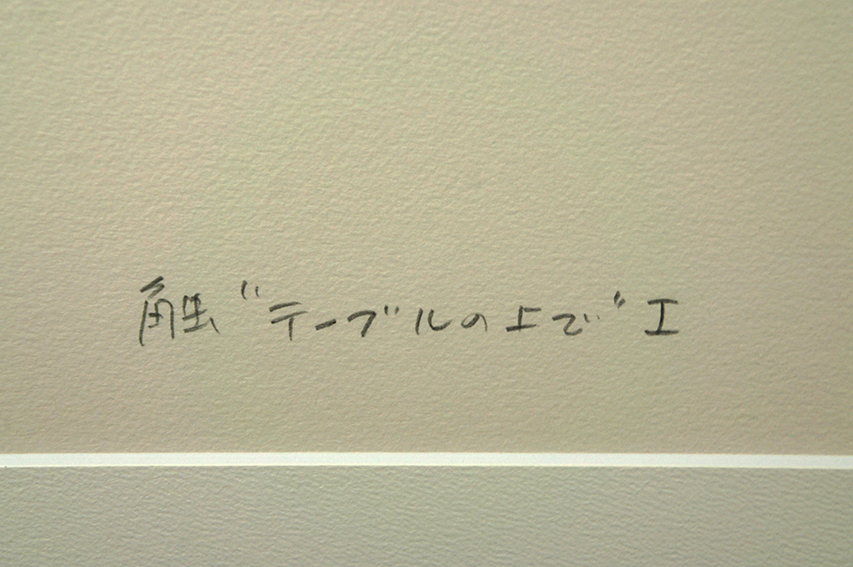 触〝テーブルの上で〟I